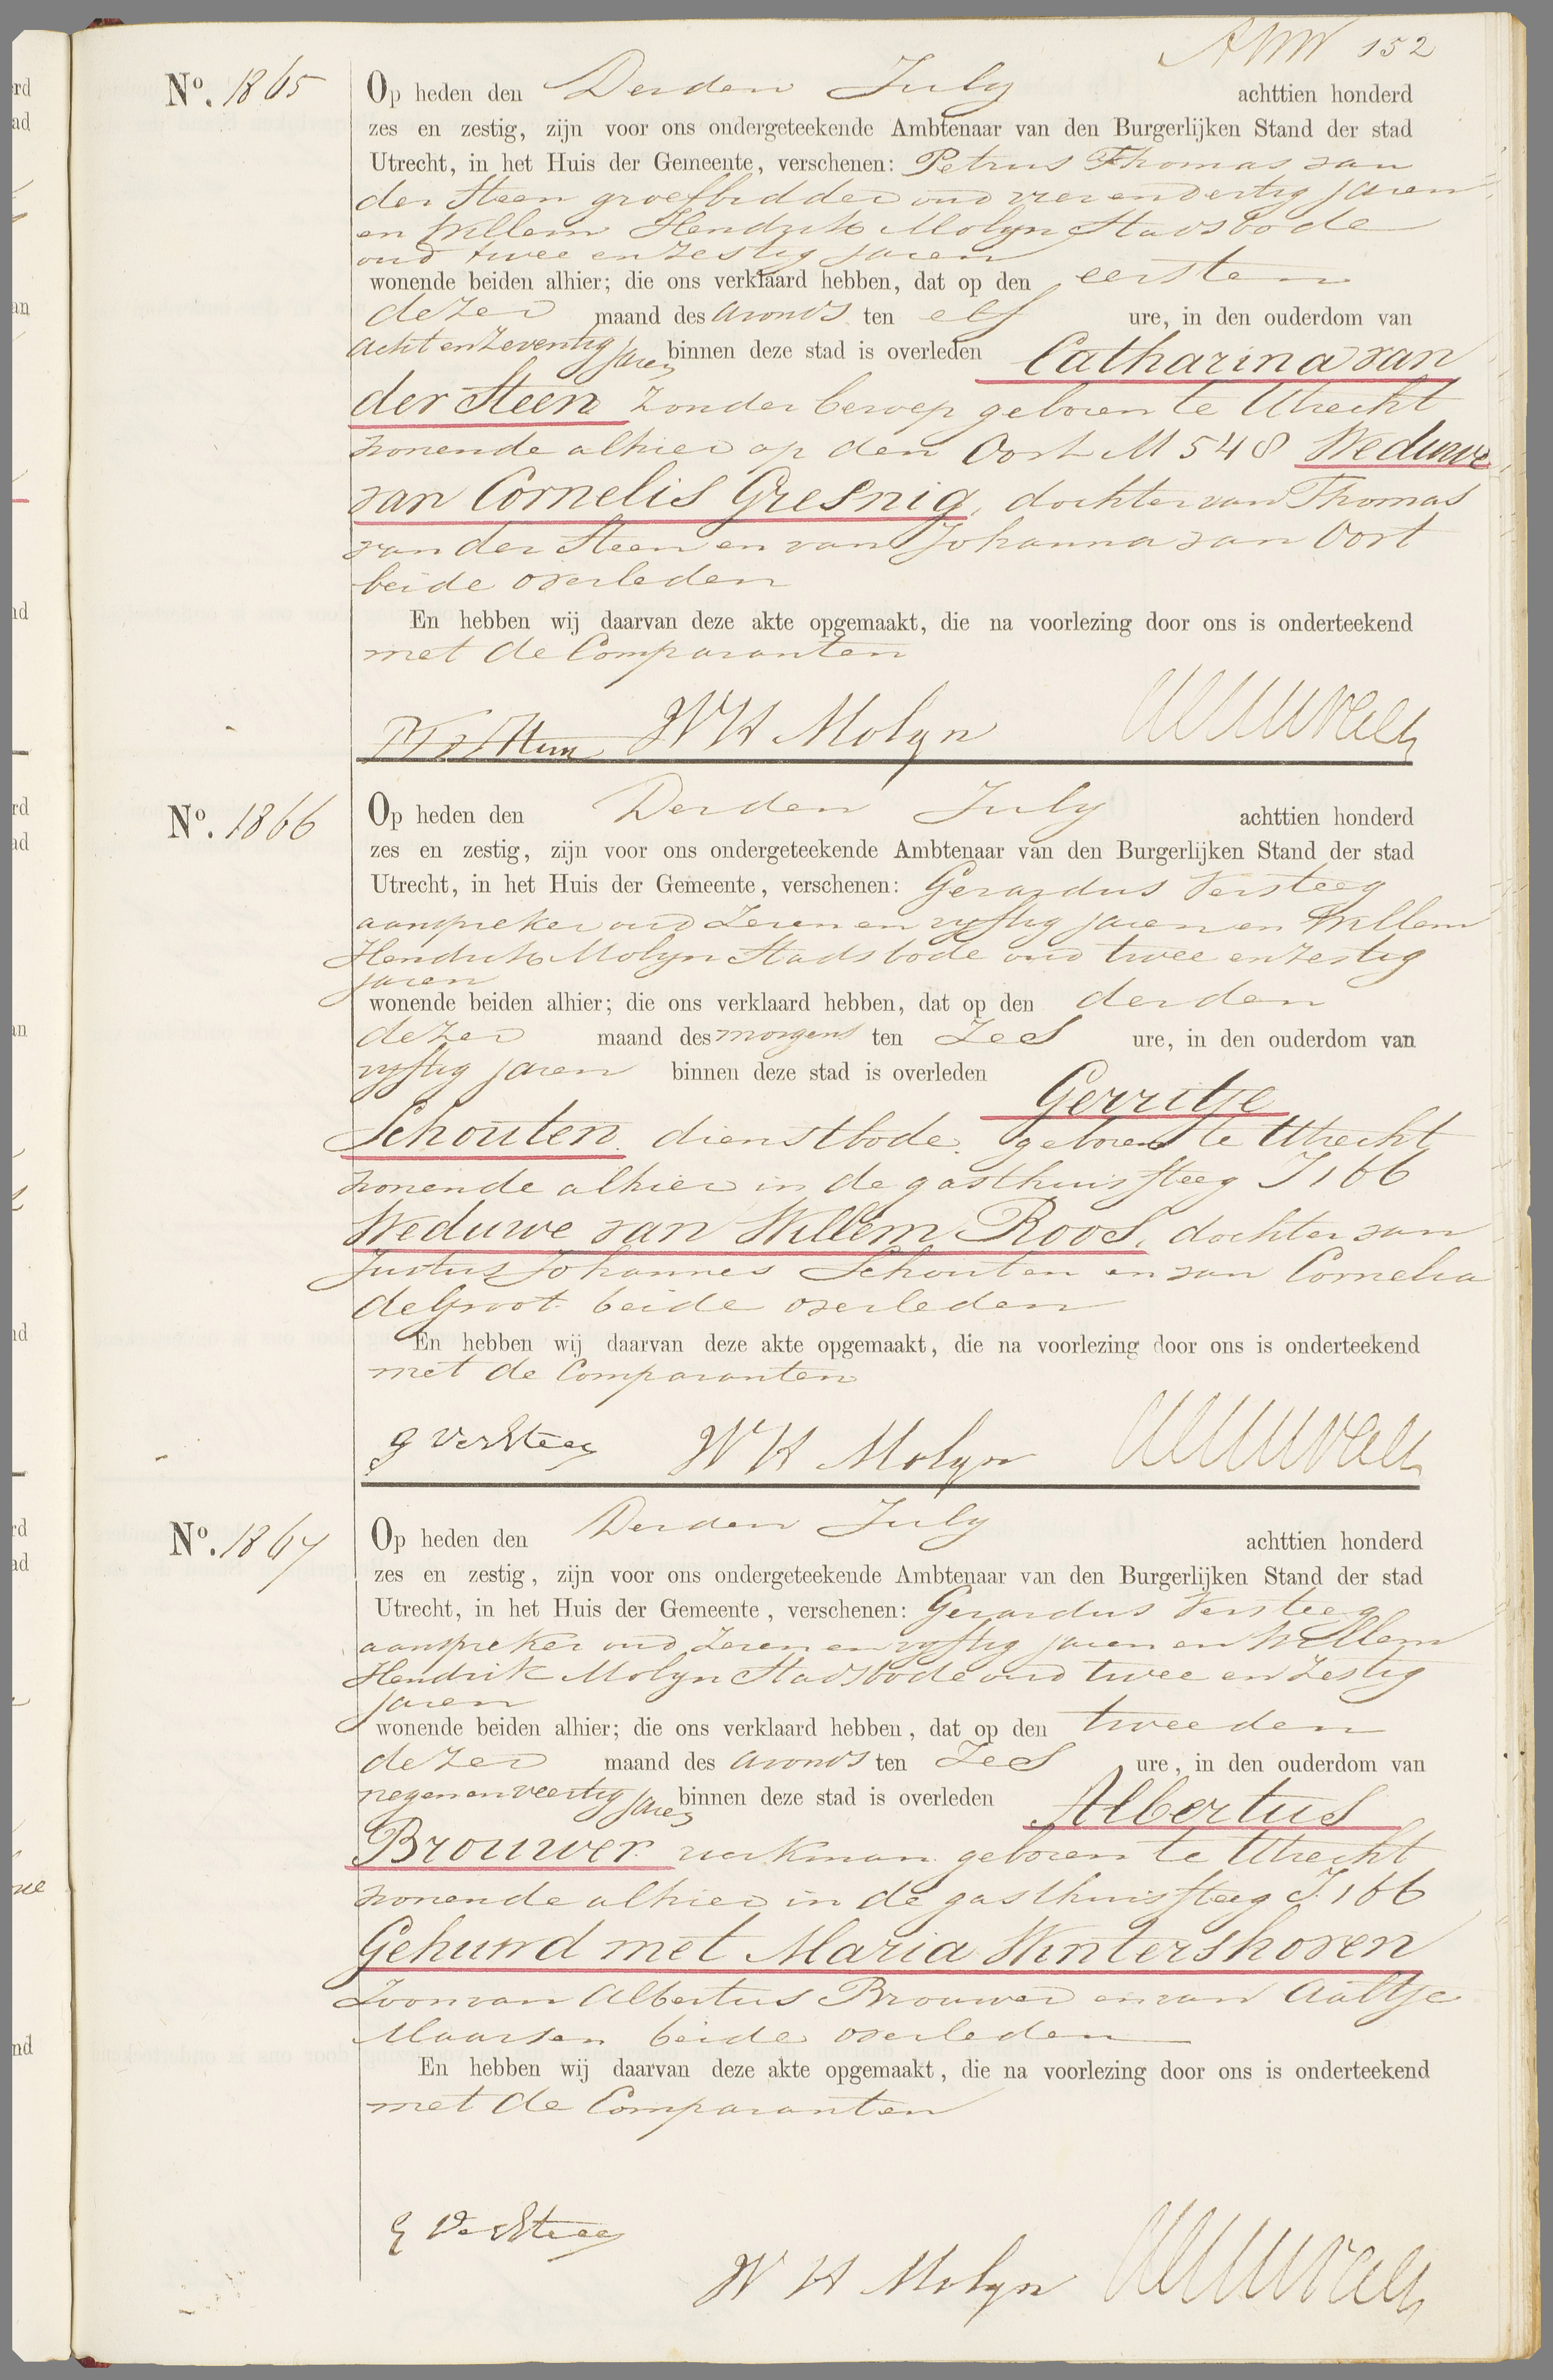 152
No. 1865
Op heden den Derden July achttien honderd
zes en zestig, zijn voor ons ondergeteekende Ambtenaar van den Burgerlijken Stand der stad
Utrecht, in het Huis der Gemeente, verschenen: Petrus Thomas van
der Steen groefbidder oud vier en dertig jaren
en Willem Hendrik Molyn Stadsbode
oud twee en zestig jaren
wonende beiden alhier; die ons verklaard hebben, dat op den eersten
dezer maand des avonds ten elf ure, in den ouderdom van
acht en zeventig jaren binnen deze stad is overleden Catharina van
der Steen zonder beroep geboren te Utrecht
wonende alhier op den Oort M 548 Weduwe
van Cornelis Gresnig, dochter van Thomas
van der Steen en van Johanna van Oort
beide overleden
En hebben wij daarvan deze akte opgemaakt, die na voorlezing door ons is onderteekend
met de Comparanten
W H Molyn
No. 1866
Op heden den Derden July achttien honderd
zes en zestig, zijn voor ons ondergeteekende Ambtenaar van den Burgerlijken Stand der stad
Utrecht, in het Huis der Gemeente, verschenen: Gerardus Versteeg
aanspreker oud zeven en vyftig jaren en Willem
Hendrik Molyn Stadsbode oud twee en zestig
jaren
wonende beiden alhier; die ons verklaard hebben, dat op den derden
dezer maand des morgens ten zes ure, in den ouderdom van
vyftig jaren binnen deze stad is overleden Gerritje
Schouten dienstbode geboren te Utrecht
wonende alhier in de gasthuissteeg I 166
Weduwe van Willem Roos, dochter van
Justus Johannes Schouten en van Cornelia
de Groot beide overleden
En hebben wij daarvan deze akte opgemaakt, die na voorlezing door ons is onderteekend
met de Comparanten
G VerSteeg W H Molyn
No. 1867
Op heden den Derden July achttien honderd
zes en zestig, zijn voor ons ondergeteekende Ambtenaar van den Burgerlijken Stand der stad
Utrecht, in het Huis der Gemeente, verschenen: Gerardus Versteeg
aanspreker oud zeven en vyftig jaren en Willem
Hendrik Molyn Stadsbode oud twee en zestig
jaren
wonende beiden alhier; die ons verklaard hebben, dat op den tweeden
dezer maand des avonds ten zes ure, in den ouderdom van
negen en veertig jaren binnen deze stad is overleden Albertus
Brouwer werkman geboren te Utrecht
wonende alhier in de gasthuissteeg I. 166
Gehuwd met Maria Wintershoven
Zoon van Albertus Brouwer en van Aaltje
Maarsen beide overleden
En hebben wij daarvan deze akte opgemaakt, die na voorlezing door ons is onderteekend
met de Comparanten
G VerSteeg
W H Molyn